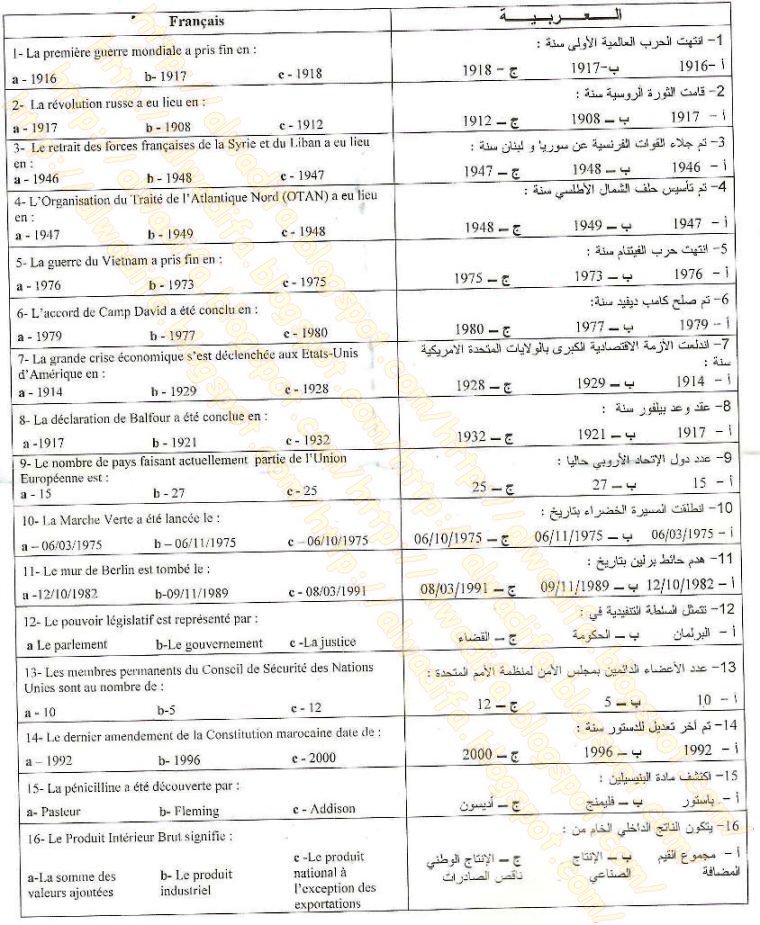 Français
العـــربيـــة
1- La première guerre mondiale a pris fin en :
a - 1916 b- 1917 c - 1918
1- انتهت الحرب العالمية الأولى سنة :
أ -1916 ب-1917 ج - 1918
2- La révolution russe a eu lieu en :
a - 1917 b - 1908 c - 1912
2- قامت الثورة الروسية سنة :
أ - 1917 ب – 1908 ج – 1912
3- Le retrait des forces françaises de la Syrie et du Liban a eu lieu
en :
a - 1946 b - 1948 c - 1947
3- تم جلاء القوات الفرنسية عن سوريا و لبنان سنة :
أ - 1946 ب – 1948 ج – 1947
4- L'Organisation du Traité de l'Atlantique Nord (OTAN) a eu lieu
en :
a - 1947 b - 1949 c - 1948
4- تم تأسيس حلف الشمال الأطلسي سنة :
أ - 1947 ب – 1949 ج – 1948
5- La guerre du Vietnam a pris fin en :
a - 1976 b - 1973 c - 1975
5- انتهت حرب الفيتنام سنة :
أ - 1976 ب – 1973 ج – 1975
6- L'accord de Camp David a été conclu en :
a - 1979 b - 1977 c - 1980
6- تم صلح كامب ديفيد سنة:
أ - 1979 ب – 1977 ج – 1980
7- La grande crise économique s'est déclenchée aux Etats-Unis
d'Amérique en :
a - 1914 b - 1929 c - 1928
7- اندلعت الأزمة الاقتصادية الكبرى بالولايات المتحدة الامريكية
سنة :
أ - 1914 ب – 1929 ج – 1928
8- La déclaration de Balfour a été conclue en :
a -1917 b - 1921 c - 1932
8- عقد وعد بيلفور سنة :
أ - 1917 ب – 1921 ج – 1932
9- Le nombre de pays faisant actuellement partie de l'Union
Européenne est :
a - 15 b - 27 c - 25
9- عدد دول الإتحاد الأروبي حاليا :
أ - 15 ب – 27 ج – 25
10- La Marche Verte a été lancée le :
a – 06/03/1975 b – 06/11/1975 c – 06/10/1975
10- انطلقت المسيرة الخضراء بتاريخ :
أ – 06/03/1975 ب – 06/11/1975 ج – 06/10/1975
11- Le mur de Berlin est tombé le :
a -12/10/1982 b-09/11/1989 c - 08/03/1991
11- هدم حائط برلين بتاريخ :
أ – 12/10/1982 ب – 09/11/1989 ج – 08/03/1991
12- Le pouvoir législatif est représenté par :
a Le parlement b-Le gouvernement c -La justice
12- تتمثل السلطة التنفيدية في :
أ - البرلمان ب – الحكومة ج – القضاء
13- Les membres permanents du Conseil de Sécurité des Nations
Unies sont au nombre de :
a – 10 b-5 c - 12
13- عدد الأعضاء الدائمين بمجلس الأمن لمنظمة الأمم المتحدة :
أ - 10 ب – 5 ج – 12
14- Le dernier amendement de la Constitution marocaine date de :
a – 1992 b- 1996 c - 2000
14- تم آخر تعديل للدستور سنة :
أ – 1992 ب – 1996 ج – 2000
15- La pénicilline a été découverte par :
a- Pasteur b- Fleming c - Addison
15- اكتشف مادة البنيسيلين :
أ – باستور ب – فليمنج ج – أديسون
16- Le Produit Intérieur Brut signifie :
a-La somme des valeurs ajoutées b- Le produit industriel c -Le produit national à l'exception des exportations
16- يتكون الناتج الداخلي الخام من :
أ - مجموع القيم المضافة ب – الإنتاج الصناعي ج – الإنتاج الوطني ناقص الصادرات
http://alwadifa.blogspot.com/